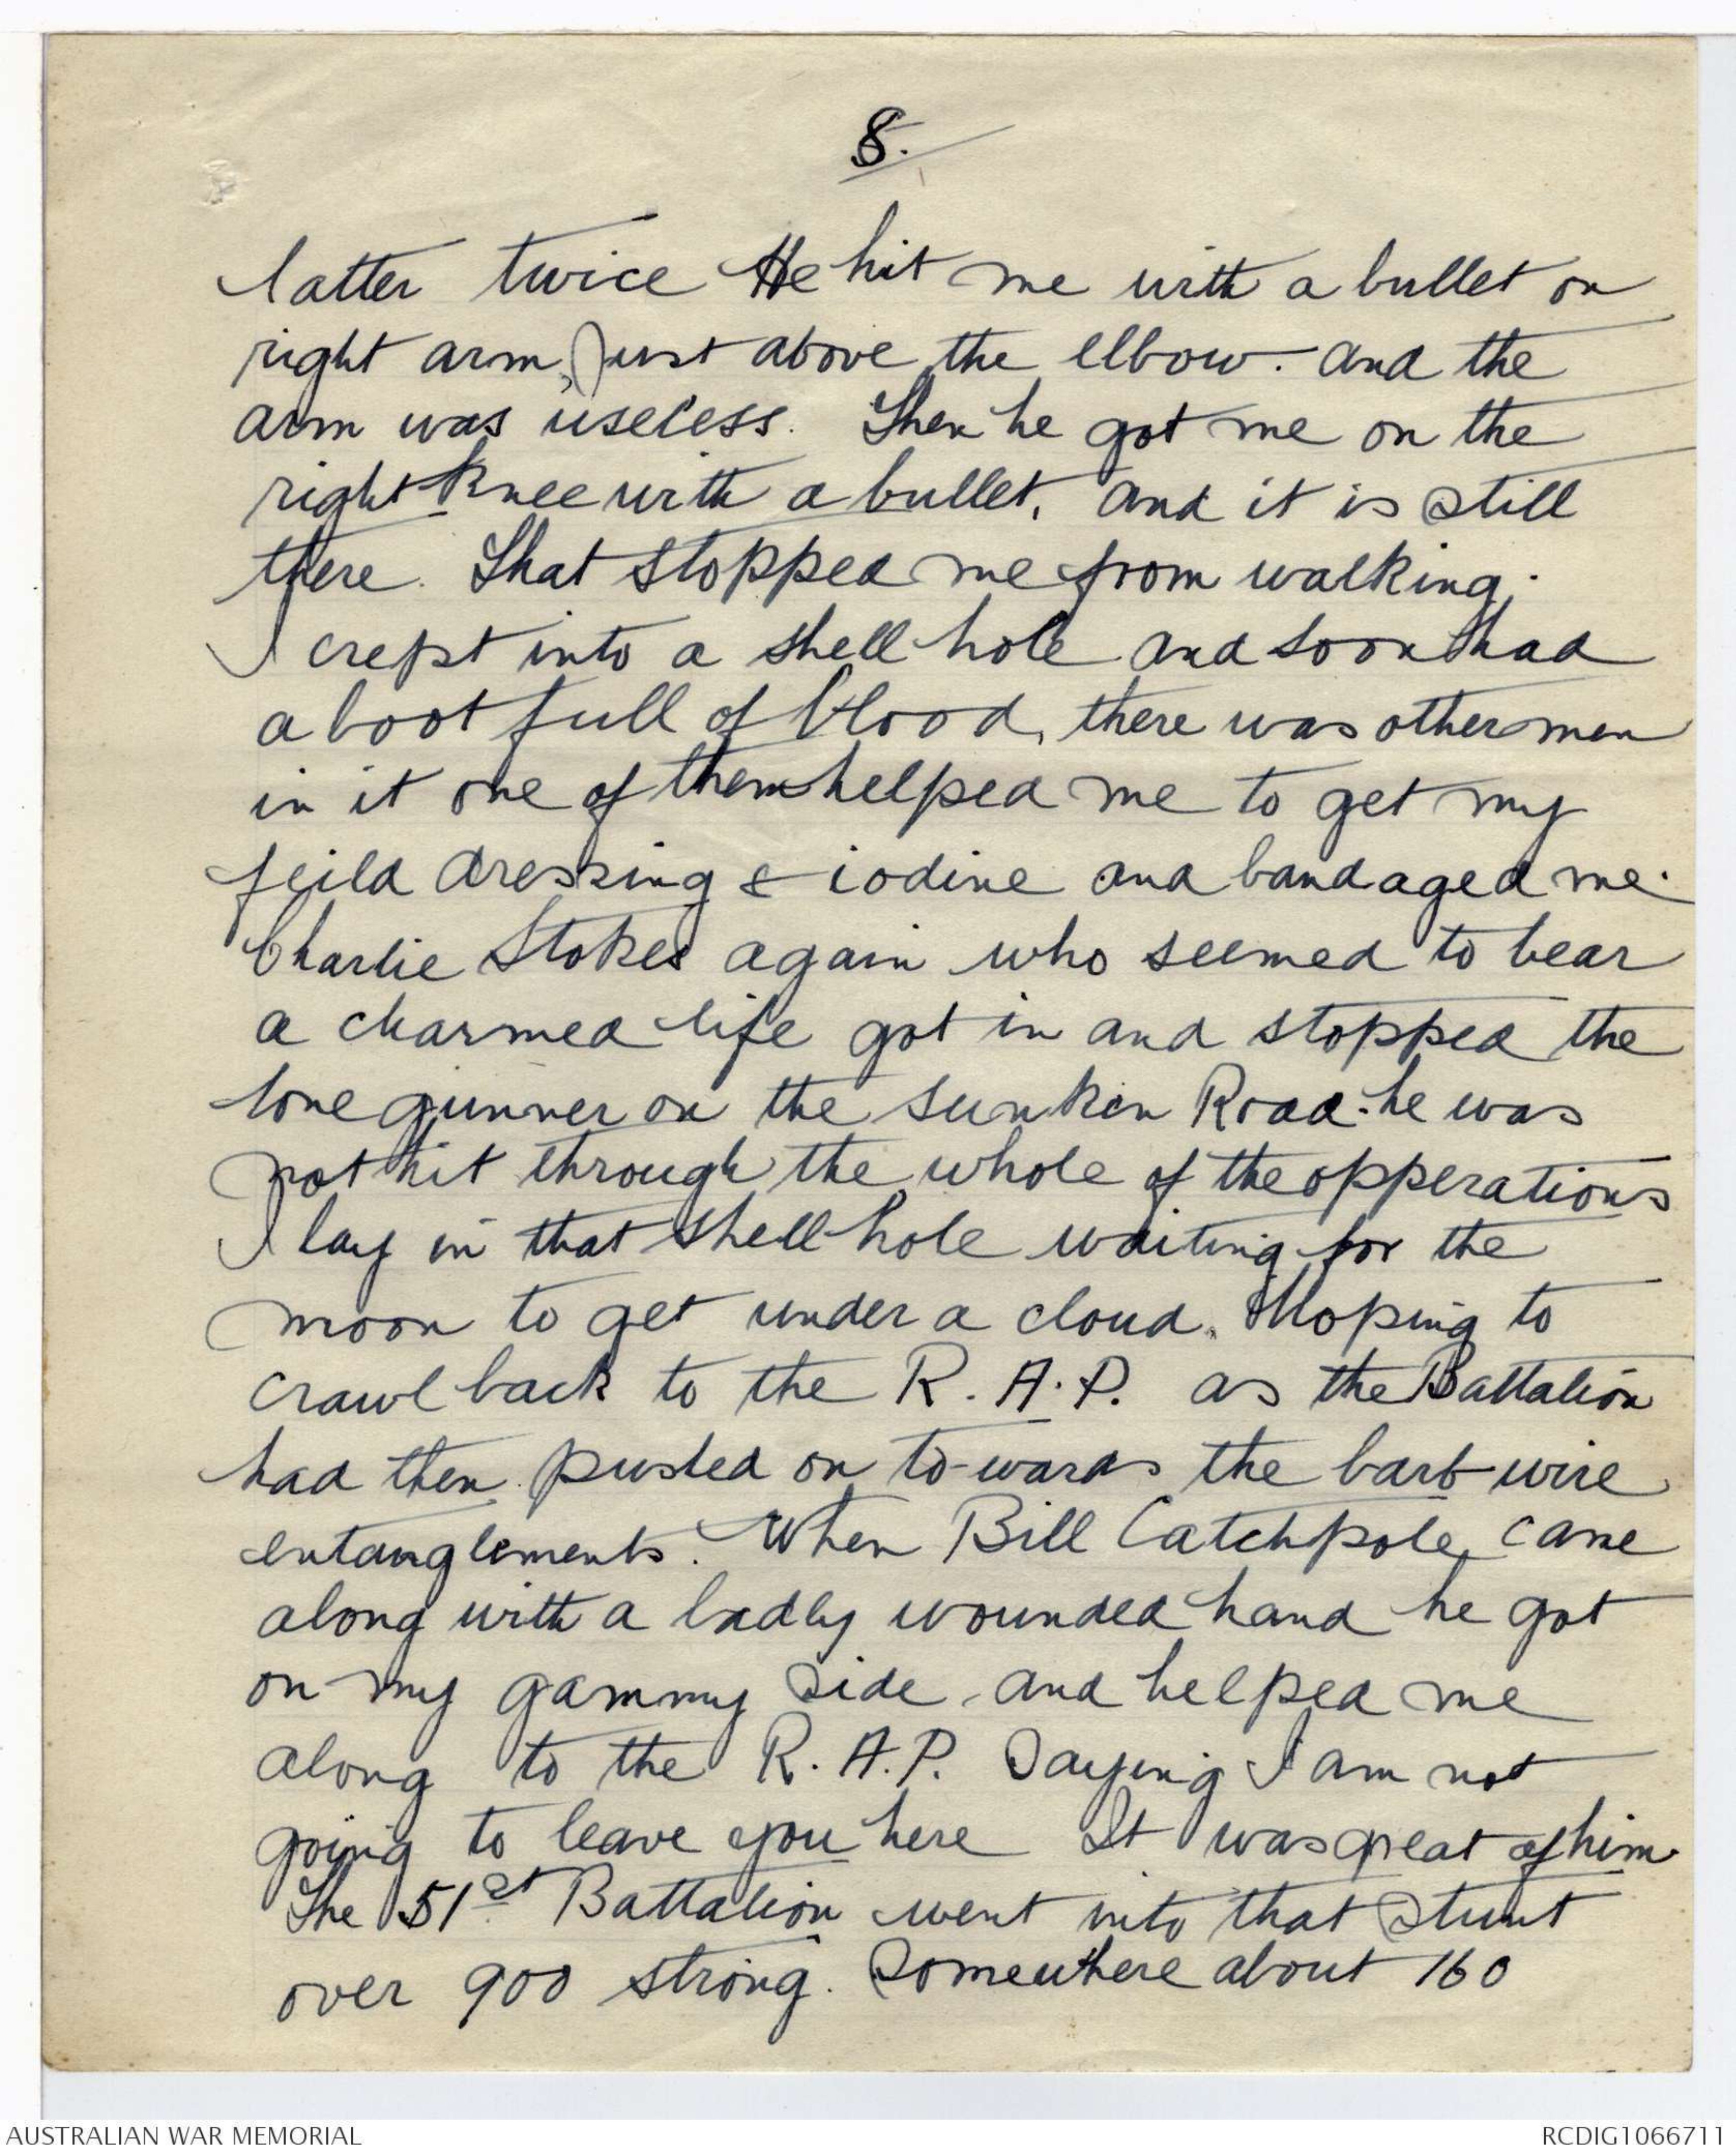 8.
latter twice He hit me with a bullet on
right arm, just above the elbow. and the
arm was useless. Then he got me on the
right knee with a bullet, and it is still
there. That stopped me from walking.
I crept into a shell hole and soon had
a boot full of blood, there was other men
in it one of them helped me to get my
feild dressing & iodine and bandaged me.
Charlie Stokes again who seemed to bear
a charmed life got in and stopped the
lone gunner on the Sunken Road. he was
not hit through the whole of the opperations
I lay in that shell hole waiting for the
moon to get under a cloud. Hoping to
crawl back to the R.A.P. as the Battalion
had then pushed on to-wards the barb-wire
entanglements. When Bill Catchpole came
along with a badly wounded hand he got
on my gammy side, and helped me
along to the R.A.P. Saying I am not
going to leave you here It was great of him.
The 51st Battalion went into that stunt
over 900 strong. Somewhere about 160
AUSTRALIAN WAR MEMORIAL
RCDIG1066711